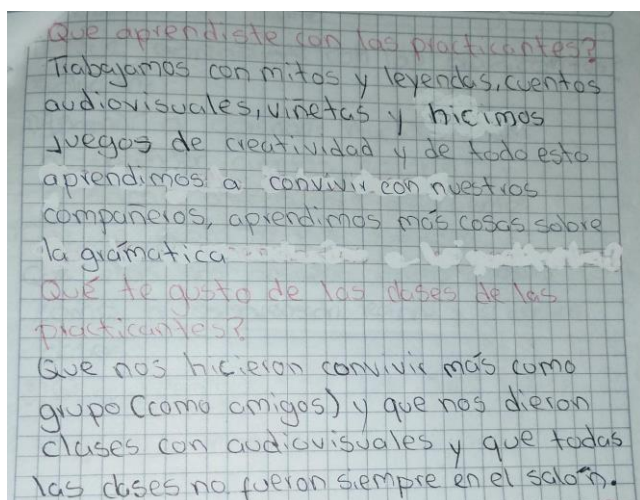 Que aprendiste con las practicantes?
Trabajamos con mitos y leyendas, cuentos
audiovisuales, viñetas y hicimos
juegos de creatividad y de todo esto
aprendimos a convivir con nuestros
compañeros, aprendimos más cosas sobre
la gramatica
Qué te gusto de las clases de las
practicantes?
Que nos hicieron convivir más como
grupo (como amigos) y que nos dieron
clases con audiovisuales y que todas
las clases no fueron siempre en el salón.